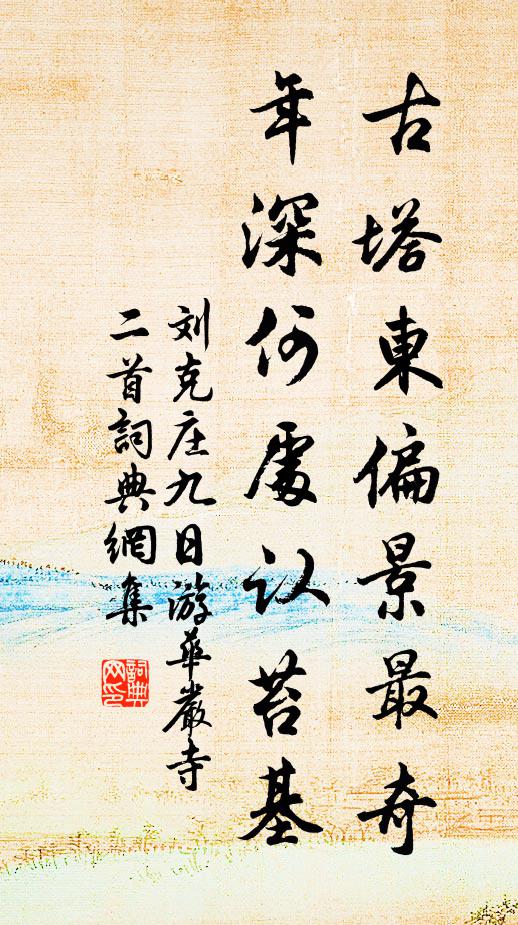 古塔東偏景最奇
年深何處认苔基
刘克庄九日游華巖寺
二首詞典網集
詞典网印